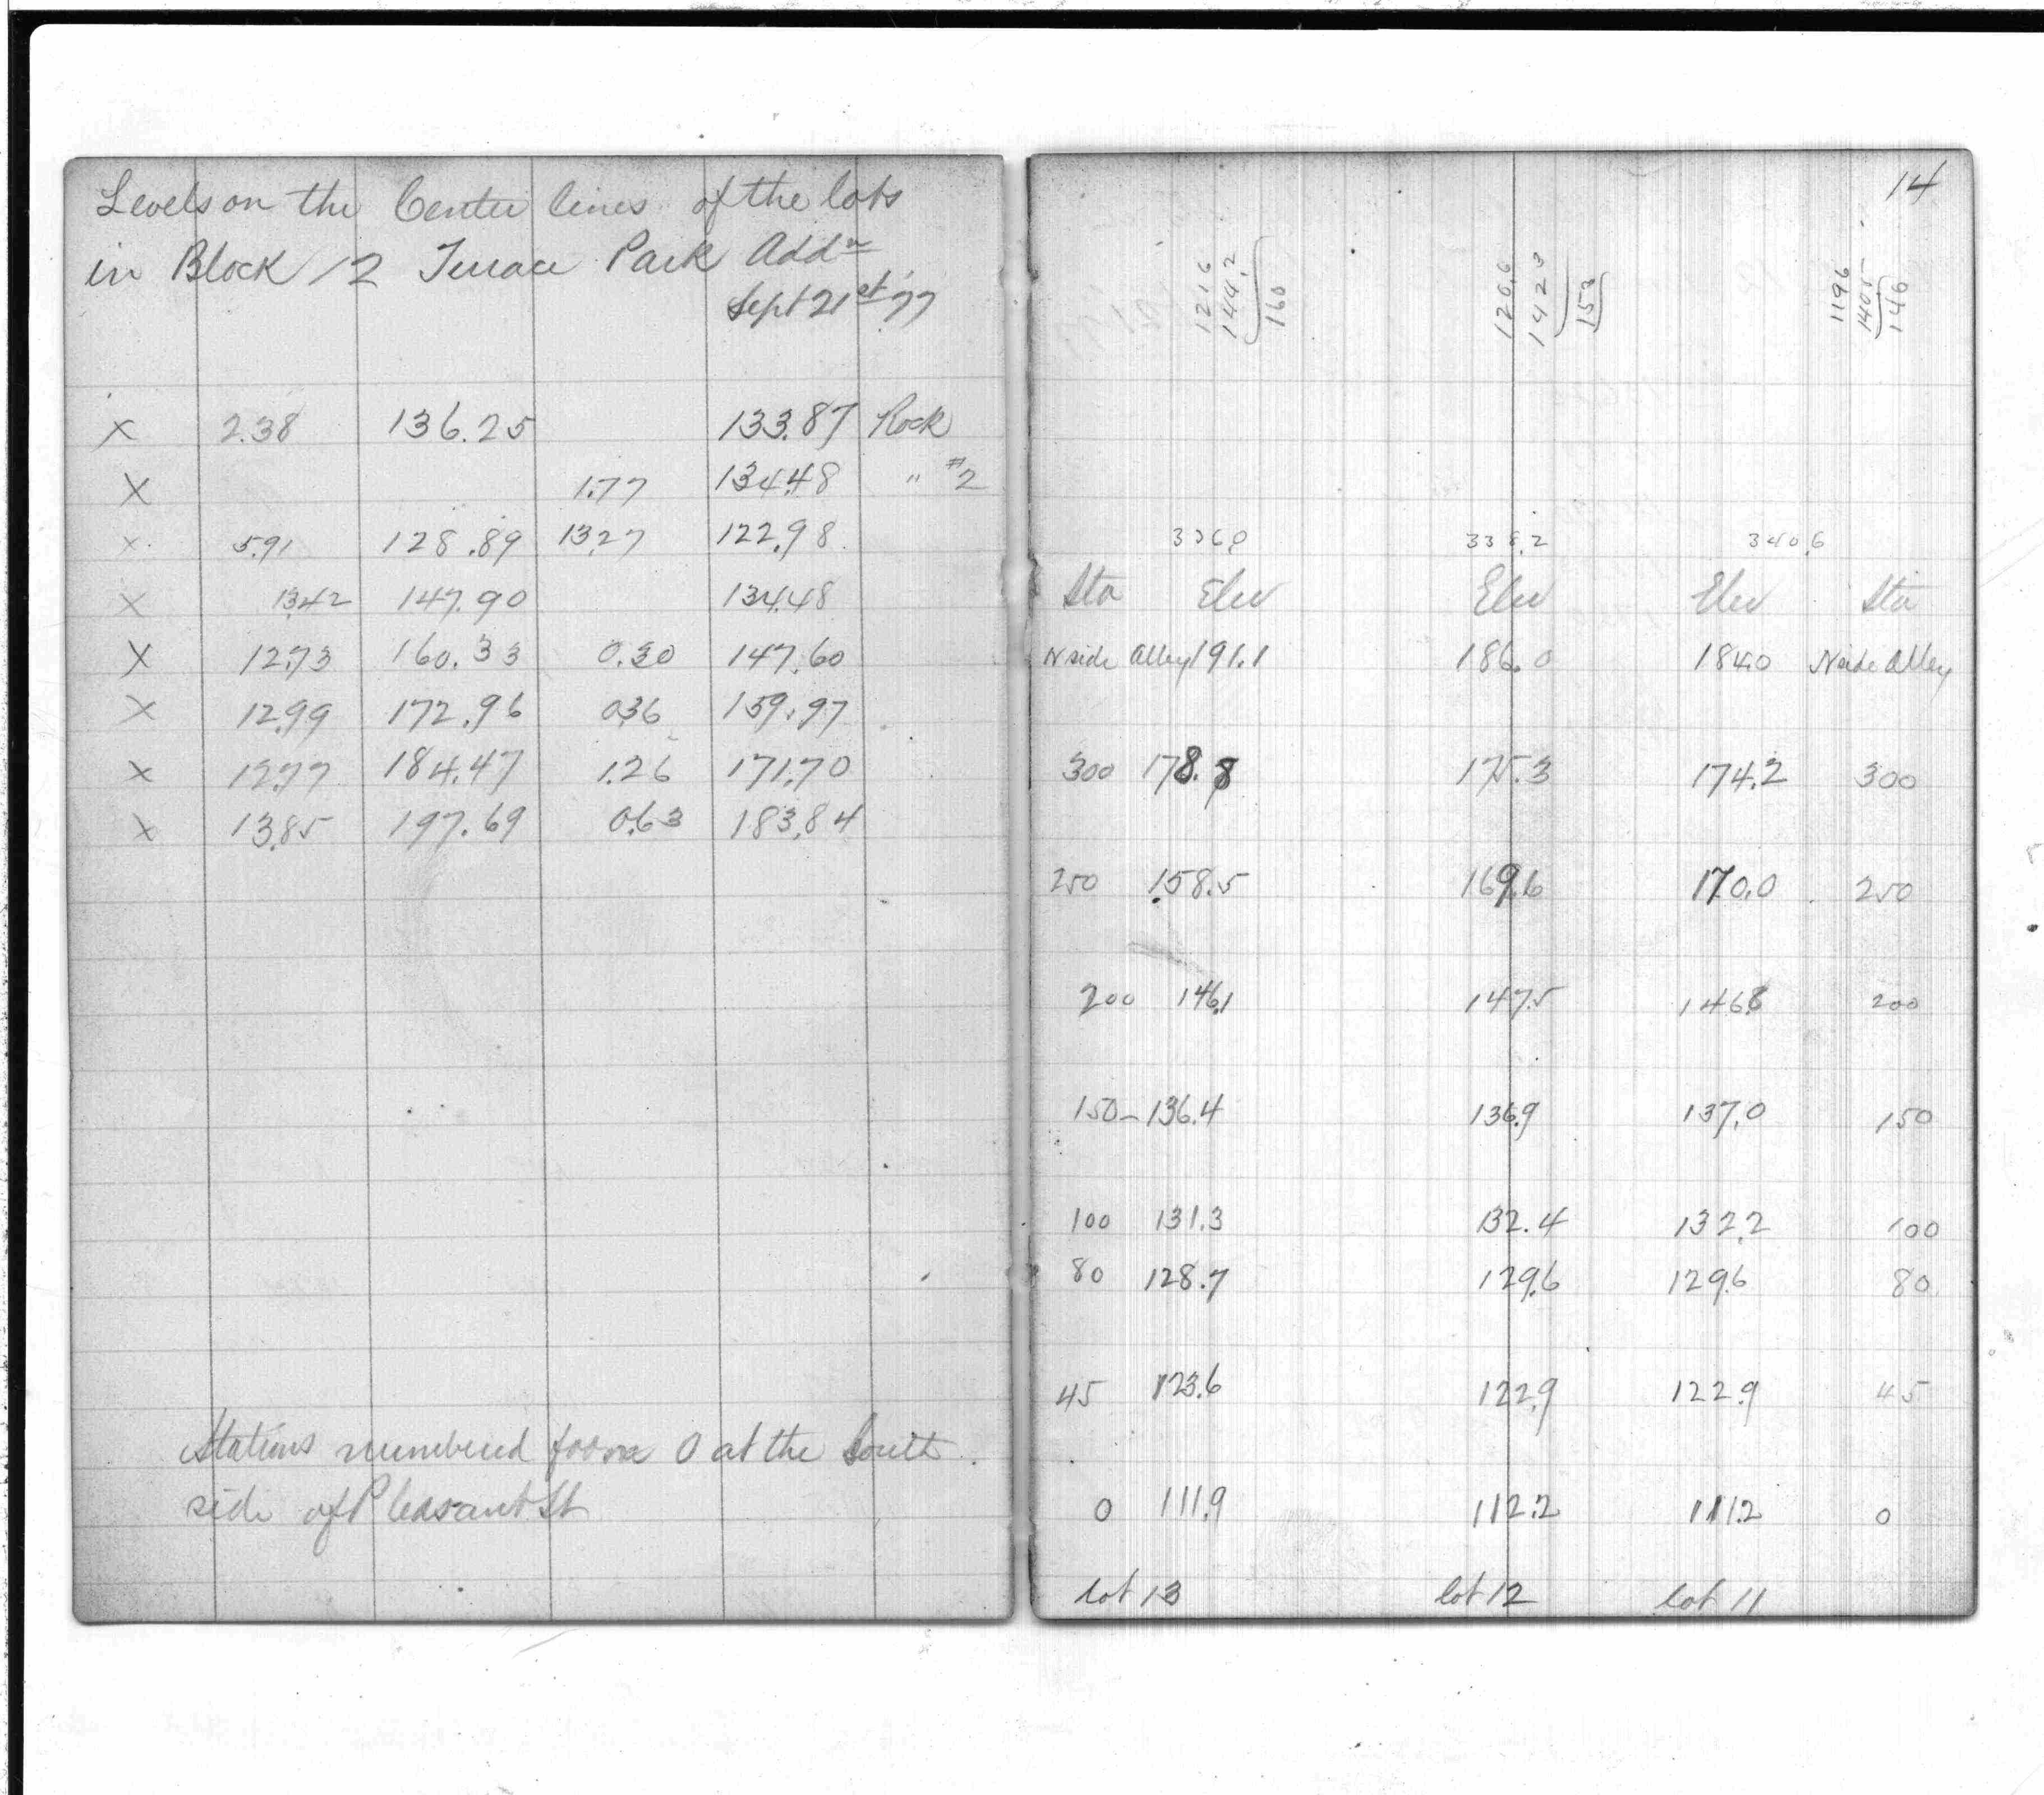 Levels on the Center lines of the lots
in Block 12 Terrace Park Addn
Sept 21st 77
x 2.38 136.25 133.87 Rock
x 1.77 134.48 " #2
x 5.91 128.89 13.27 122.98
x 13.42 147.90 134.48
x 12.73 160.33 0.30 147.60
x 12.99 172.96 0.36 159.97
x 12.77 184.47 1.26 171.70
x 13.85 197.69 0.63 183.84
Stations numbered from 0 at the South
side of Pleasant St
14
121.6
144.2
160
120.6
142.3
153
119.6
140.5
146
336.0 338.2 340.6
Sta Elev Elev Elev Sta
N side Alley 191.1 186.0 184.0 N side Alley
300 178.8 175.3 174.2 300
250 158.5 169.6 170.0 250
200 146.1 147.5 146.8 200
150 - 136.4 136.9 137.0 150
100 131.3 132.4 132.2 100
80 128.7 129.6 129.6 80
45 123.6 122.9 122.9 45
0 111.9 112.2 111.2 0
lot 13 lot 12 lot 11